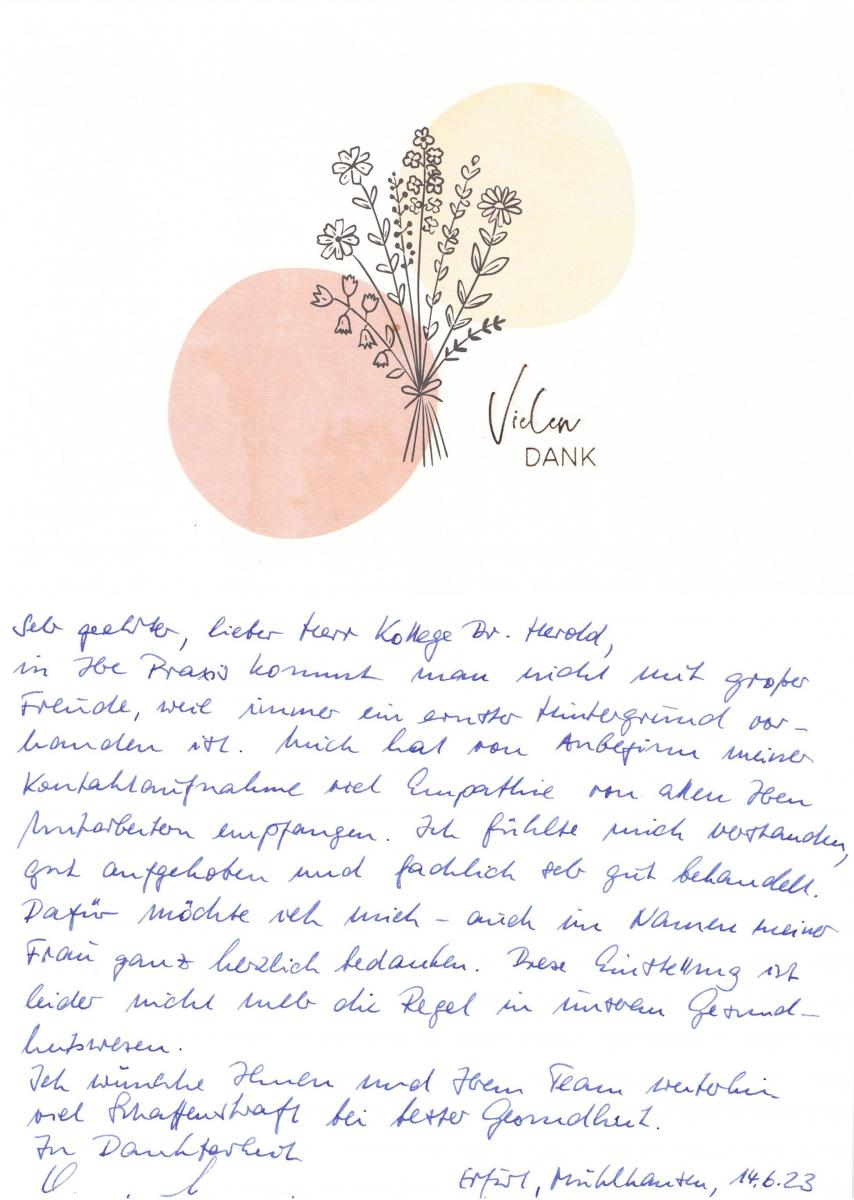 Vielen
DANK
Sehr geehrter, lieber Herr Kollege Dr. Herold,
in Ihre Praxis kommt man nicht mit großer
Freude, weil immer ein ernster Hintergrund vor-
handen ist. Mich hat von Anbeginn meiner
Kontaktaufnahme viel Empathie von allen Ihren
Mitarbeitern empfangen. Ich fühlte mich verstanden,
gut aufgehoben und fachlich sehr gut behandelt.
Dafür möchte ich mich - auch im Namen meiner
Frau ganz herzlich bedanken. Diese Einstellung ist
leider nicht mehr die Regel in unserem Gesund-
heitswesen.
Ich wünsche Ihnen und Ihrem Team weiterhin
viel Schaffenskraft bei bester Gesundheit.
In Dankbarkeit
Erfurt, Mühlhausen, 14.6.23